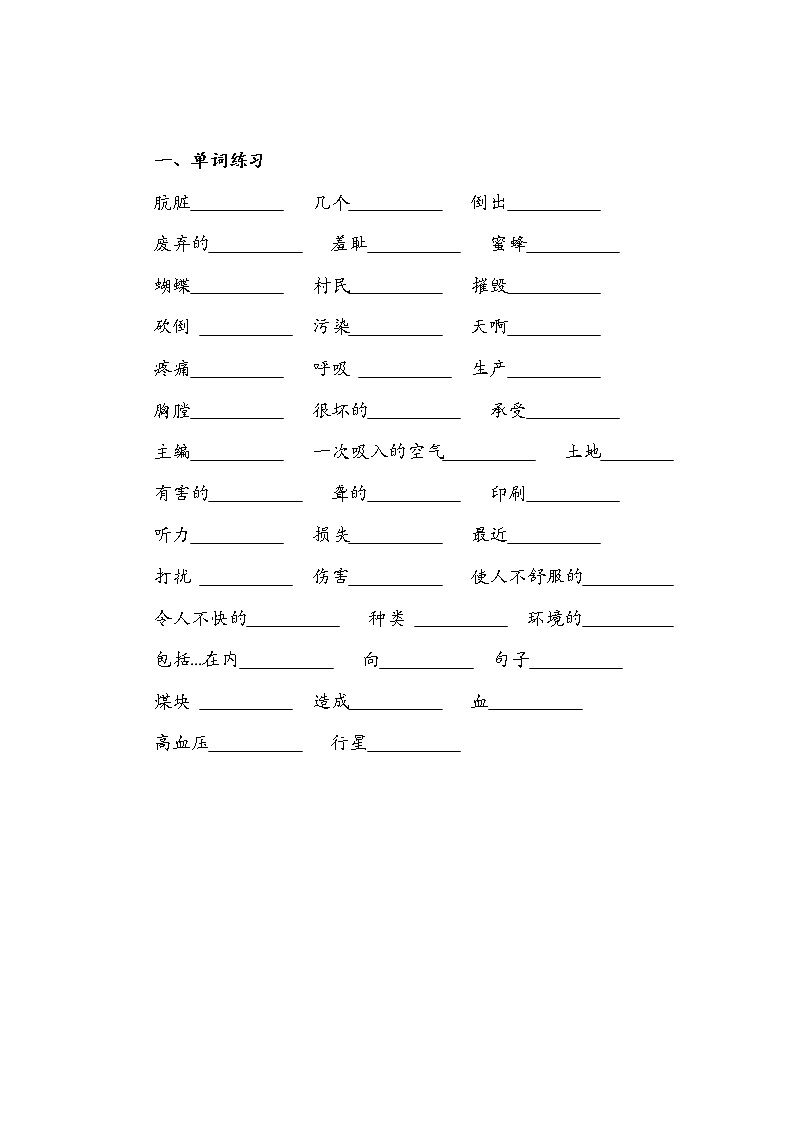 一、单词练习
肮脏__________ 几个__________ 倒出__________
废弃的__________ 羞耻__________ 蜜蜂__________
蝴蝶__________ 村民__________ 摧毁__________
砍倒 __________ 污染__________ 天啊__________
疼痛__________ 呼吸 __________ 生产__________
胸膛__________ 很坏的__________ 承受__________
主编__________ 一次吸入的空气__________ 土地________
有害的__________ 聋的__________ 印刷__________
听力__________ 损失__________ 最近__________
打扰 __________ 伤害__________ 使人不舒服的__________
令人不快的__________ 种类 __________ 环境的__________
包括...在内__________ 向__________ 句子__________
煤块 __________ 造成__________ 血__________
高血压__________ 行星__________